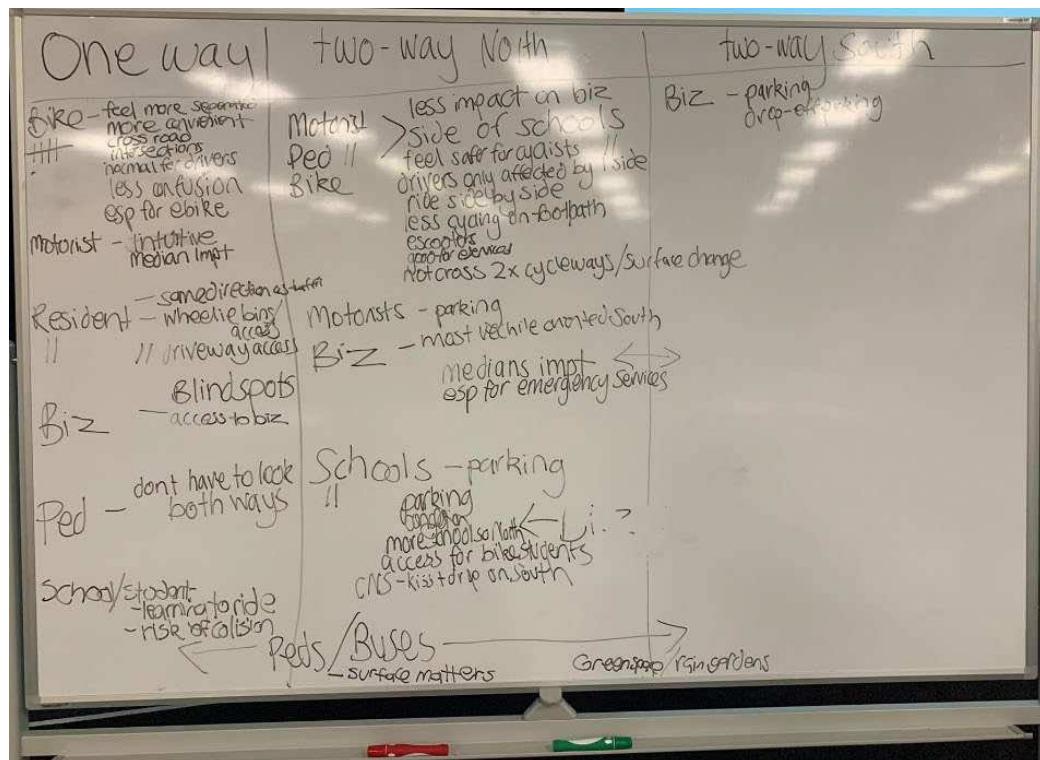 One way
Bike - feel more separated
more convenient
cross road
intersections
normal for drivers
less confusion
esp for ebike
Motorist - intuitive
median impt
- same direction as traffic
Resident - wheelie bins/
access
" // driveway access
Blindspots
Biz - access to biz
Ped - dont have to look
both ways
School/student
- learning to ride
- risk of collision
two-way North
less impact on biz
Motorist > side of schools
Ped " feel safe for cyclists "
Bike drivers only affected by 1 side
ride side by side
less cycling on footpath
escooters
good for services
Not cross 2x cycleways/surface change
Motorists - parking
Biz - most vechile oriented South
medians impt
esp for emergency services
Schools - parking
" parking
more schools on North
access for bike students
CNS - kiss + drop on South
two-way South
Biz - parking
drop-off parking
Peds/Buses
- surface matters
Greenspace/raingardens